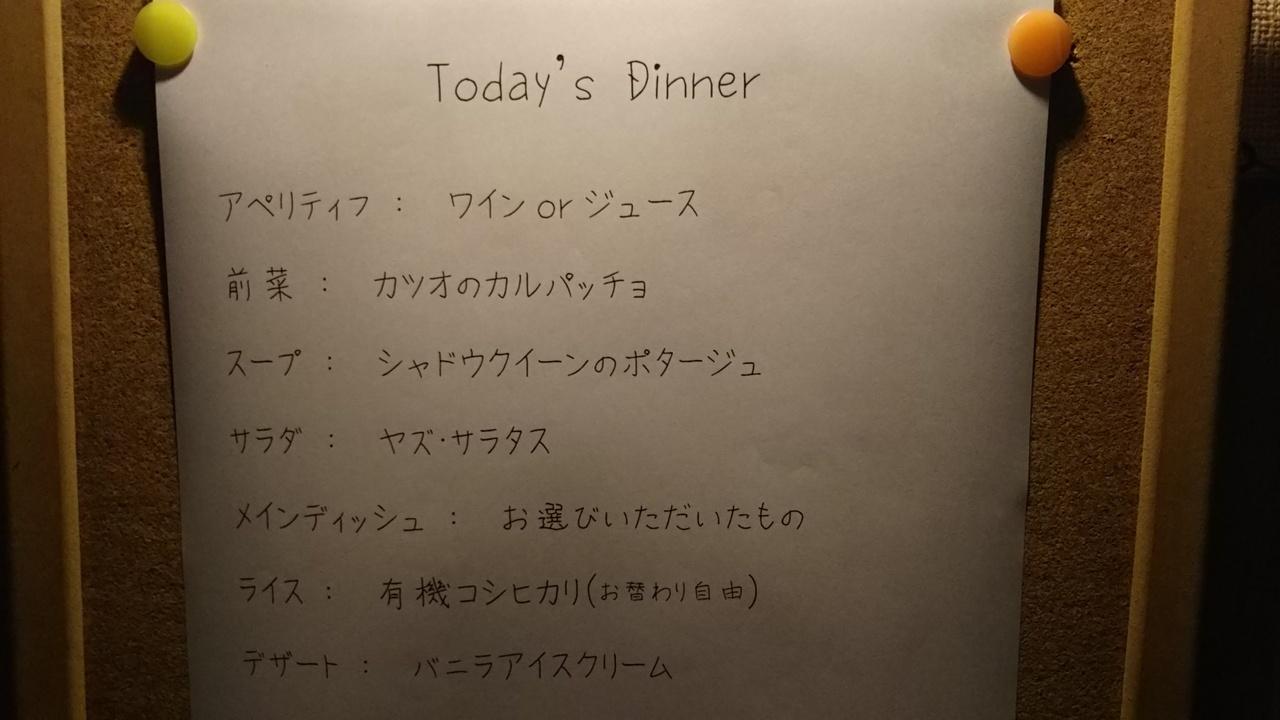 Today's Dinner
アペリティフ : ワイン or ジュース
前菜 : カツオのカルパッチョ
スープ : シャドウクイーンのポタージュ
サラダ : ヤズ・サラタス
メインディッシュ : お選びいただいたもの
ライス : 有機コシヒカリ(お替わり自由)
デザート : バニラアイスクリーム